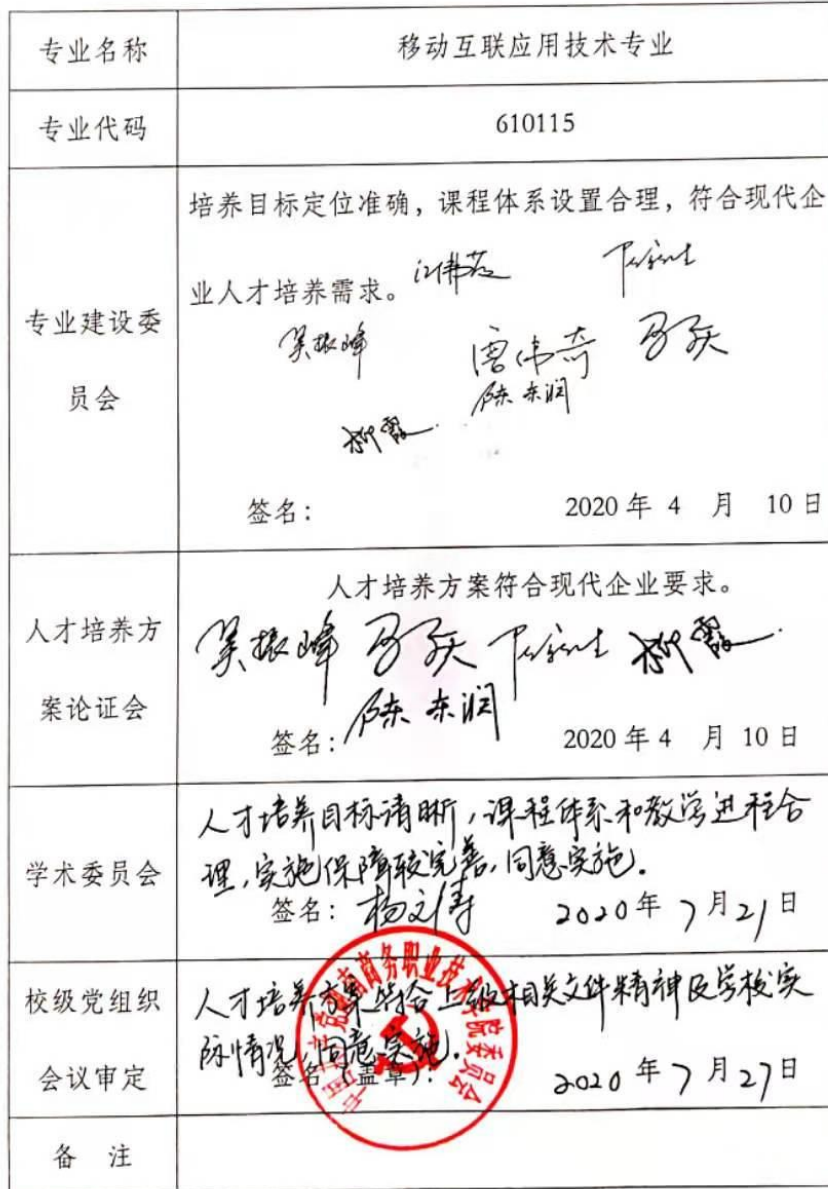 专业名称 移动互联应用技术专业
专业代码 610115
专业建设委员会
培养目标定位准确，课程体系设置合理，符合现代企
业人才培养需求。
吴振峰
陈东润
签名： 2020 年 4 月 10 日
人才培养方案论证会
人才培养方案符合现代企业要求。
吴振峰
陈东润
签名： 2020 年 4 月 10 日
学术委员会
人才培养目标清晰，课程体系和教学进程合
理，实施保障较完善，同意实施。
签名：杨文涛 2020年 7月21日
校级党组织会议审定
人才培养方案符合上级相关文件精神及学校实
际情况，同意实施。
签名（盖章）： 2020 年 7 月 27 日
备 注